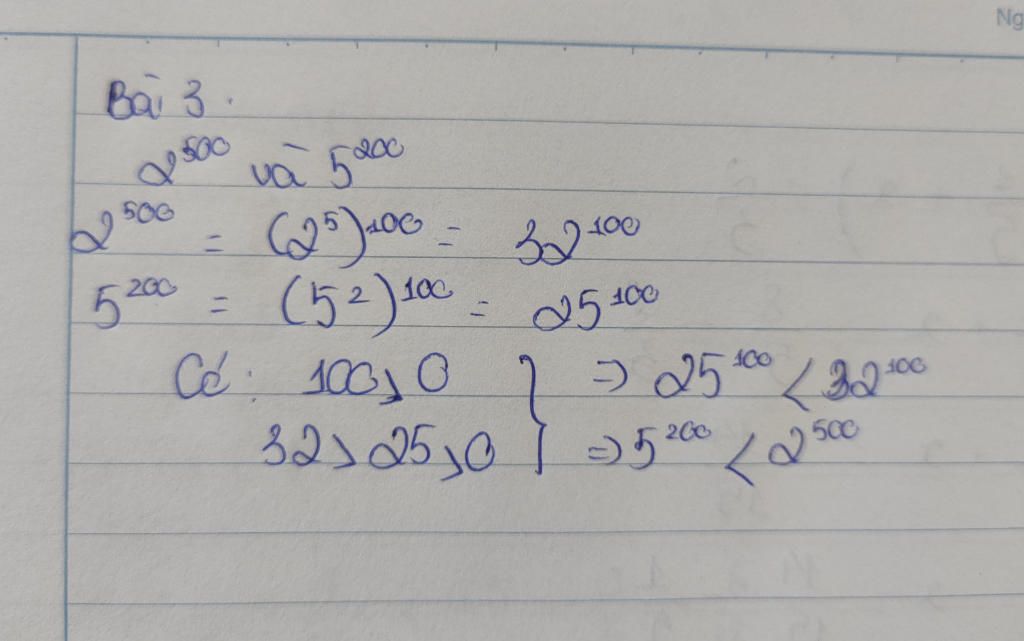 Ng
Bài 3.
2^500 và 5^200
2^500 = (2^5)^100 = 32^100
5^200 = (5^2)^100 = 25^100
Có: 100 > 0 } => 25^100 < 32^100
32 > 25 > 0 } => 5^200 < 2^500